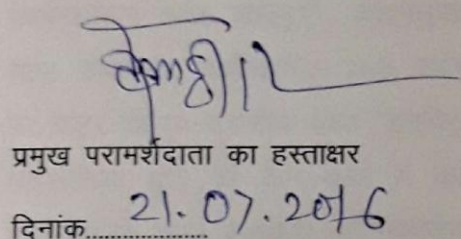 प्रमुख परामर्शदाता का हस्ताक्षर
दिनांक.................. 21.07.2016